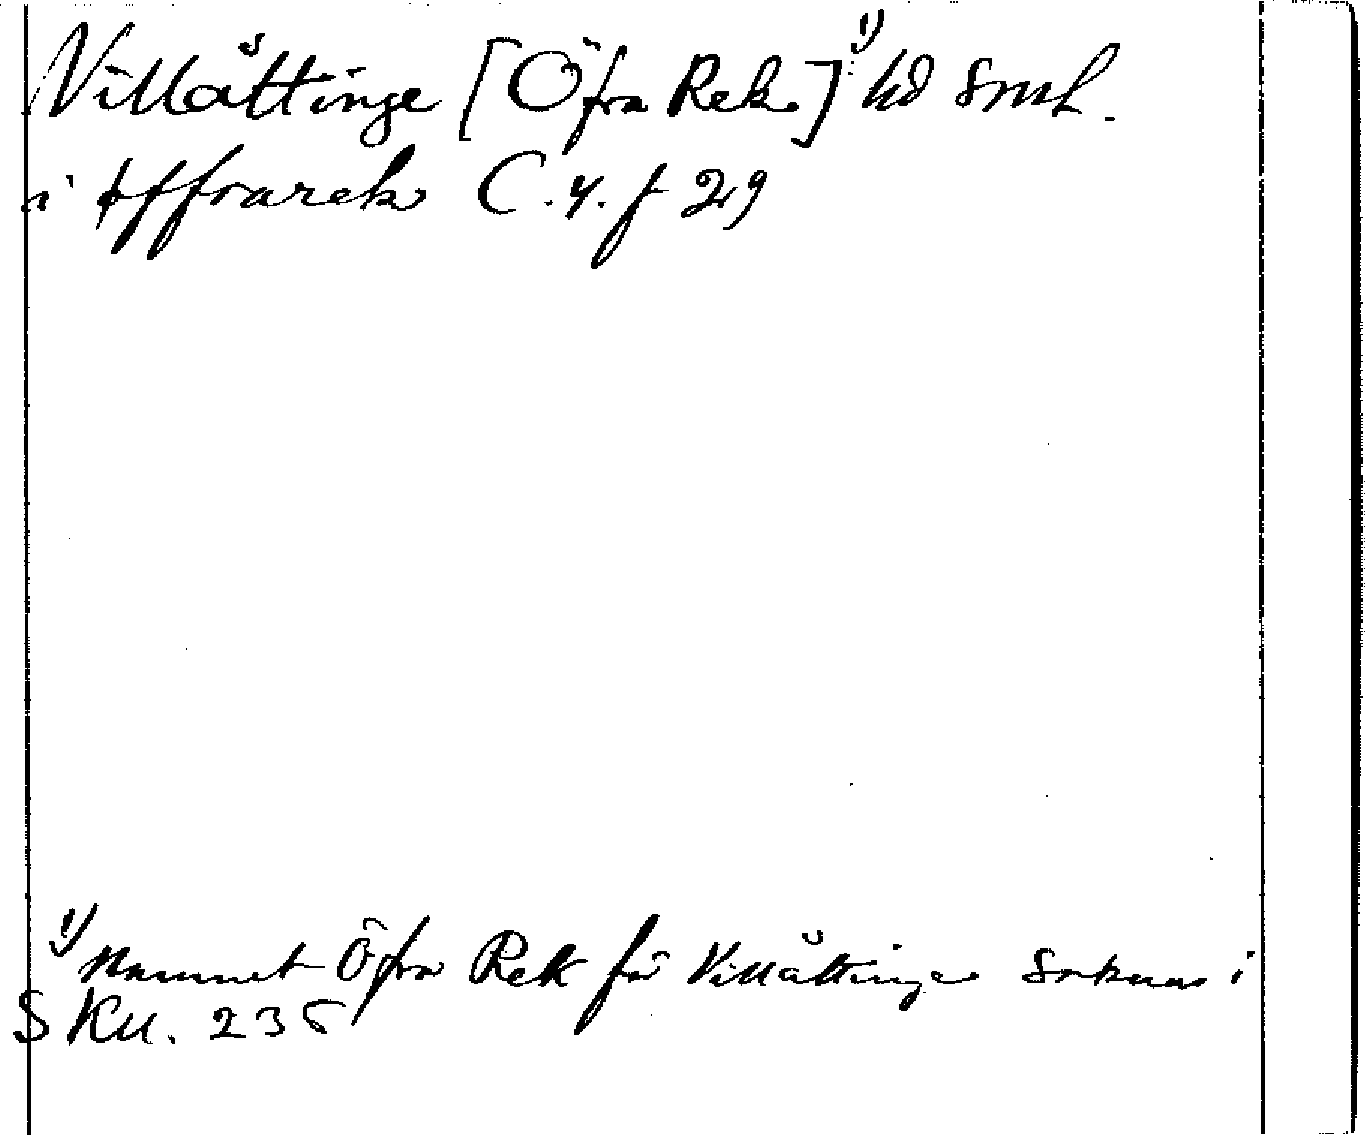 Villåttinge [Öfra Rek.] ¹⁾ hd Smhl.
i øffrarek C. 4. f 29
¹⁾ Namnet Öfra Rek för Villåttinge saknas i
SRu. 235